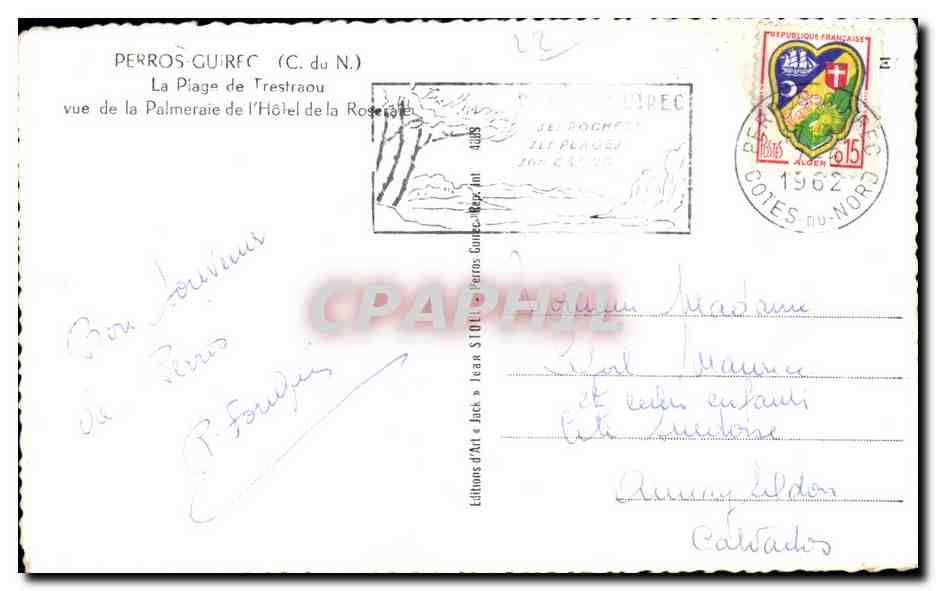 PERROS-GUIREC (C. du N.)
La Plage de Trestraou
vue de la Palmeraie de l'Hôtel de la Roseraie
22
GUIREC
SES ROCHERS
SES PLAGES
SON
REPUBLIQUE FRANÇAISE
POSTES
ALGER 0,15
1962
COTES-DU-NORD
Bon Souvenir
de Perros
Editions d'Art « Jack » Jean STOLL - Perros-Guirec - Rep. int 4089
CPAPHIL
Monsieur Madame
Maurice
et leurs enfants
Cité
Aunay s/Odon
Calvados